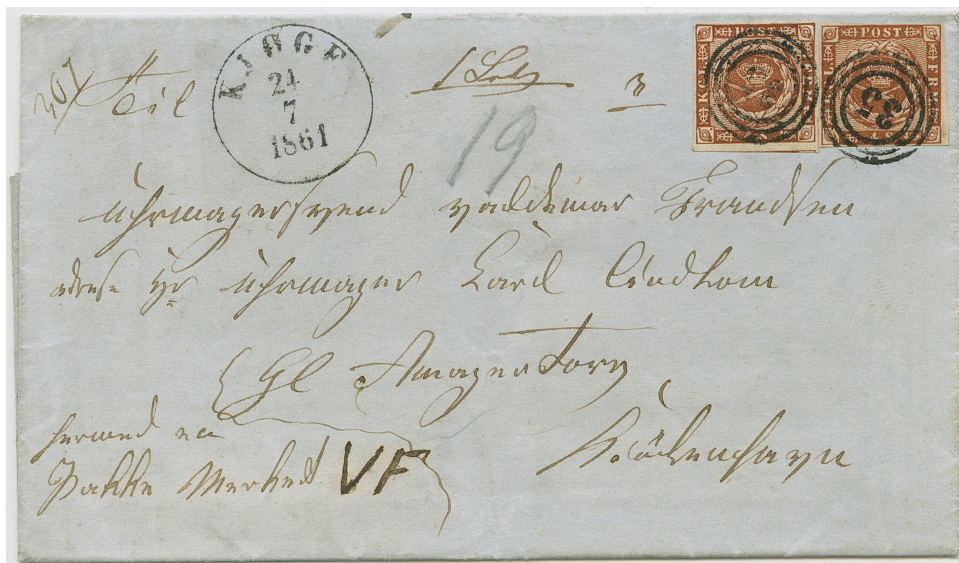 KJØGE
24
7
1861
Til
19
POST
POST
FR
35
Uhrmagersvend Valdemar Frandsen
adresse Hr Uhrmager Carl Lindhom
Gl Amagertorv
Kiöbenhavn
hermed en
Pakke Merket VF